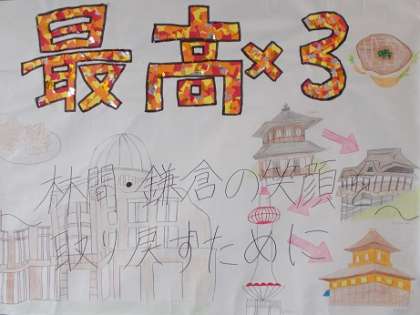 最高×3
林間・鎌倉の笑顔を〜
取り戻すために